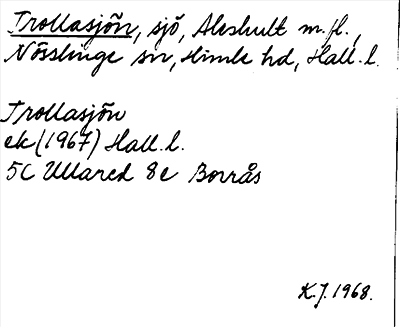 Trollasjön, sjö, Aleshult m.fl.,
Nösslinge sn, Himle hd, Hall. l.
Trollasjön
ek (1967) Hall. l.
5C Ullared 8e Borrås
K.J. 1968.